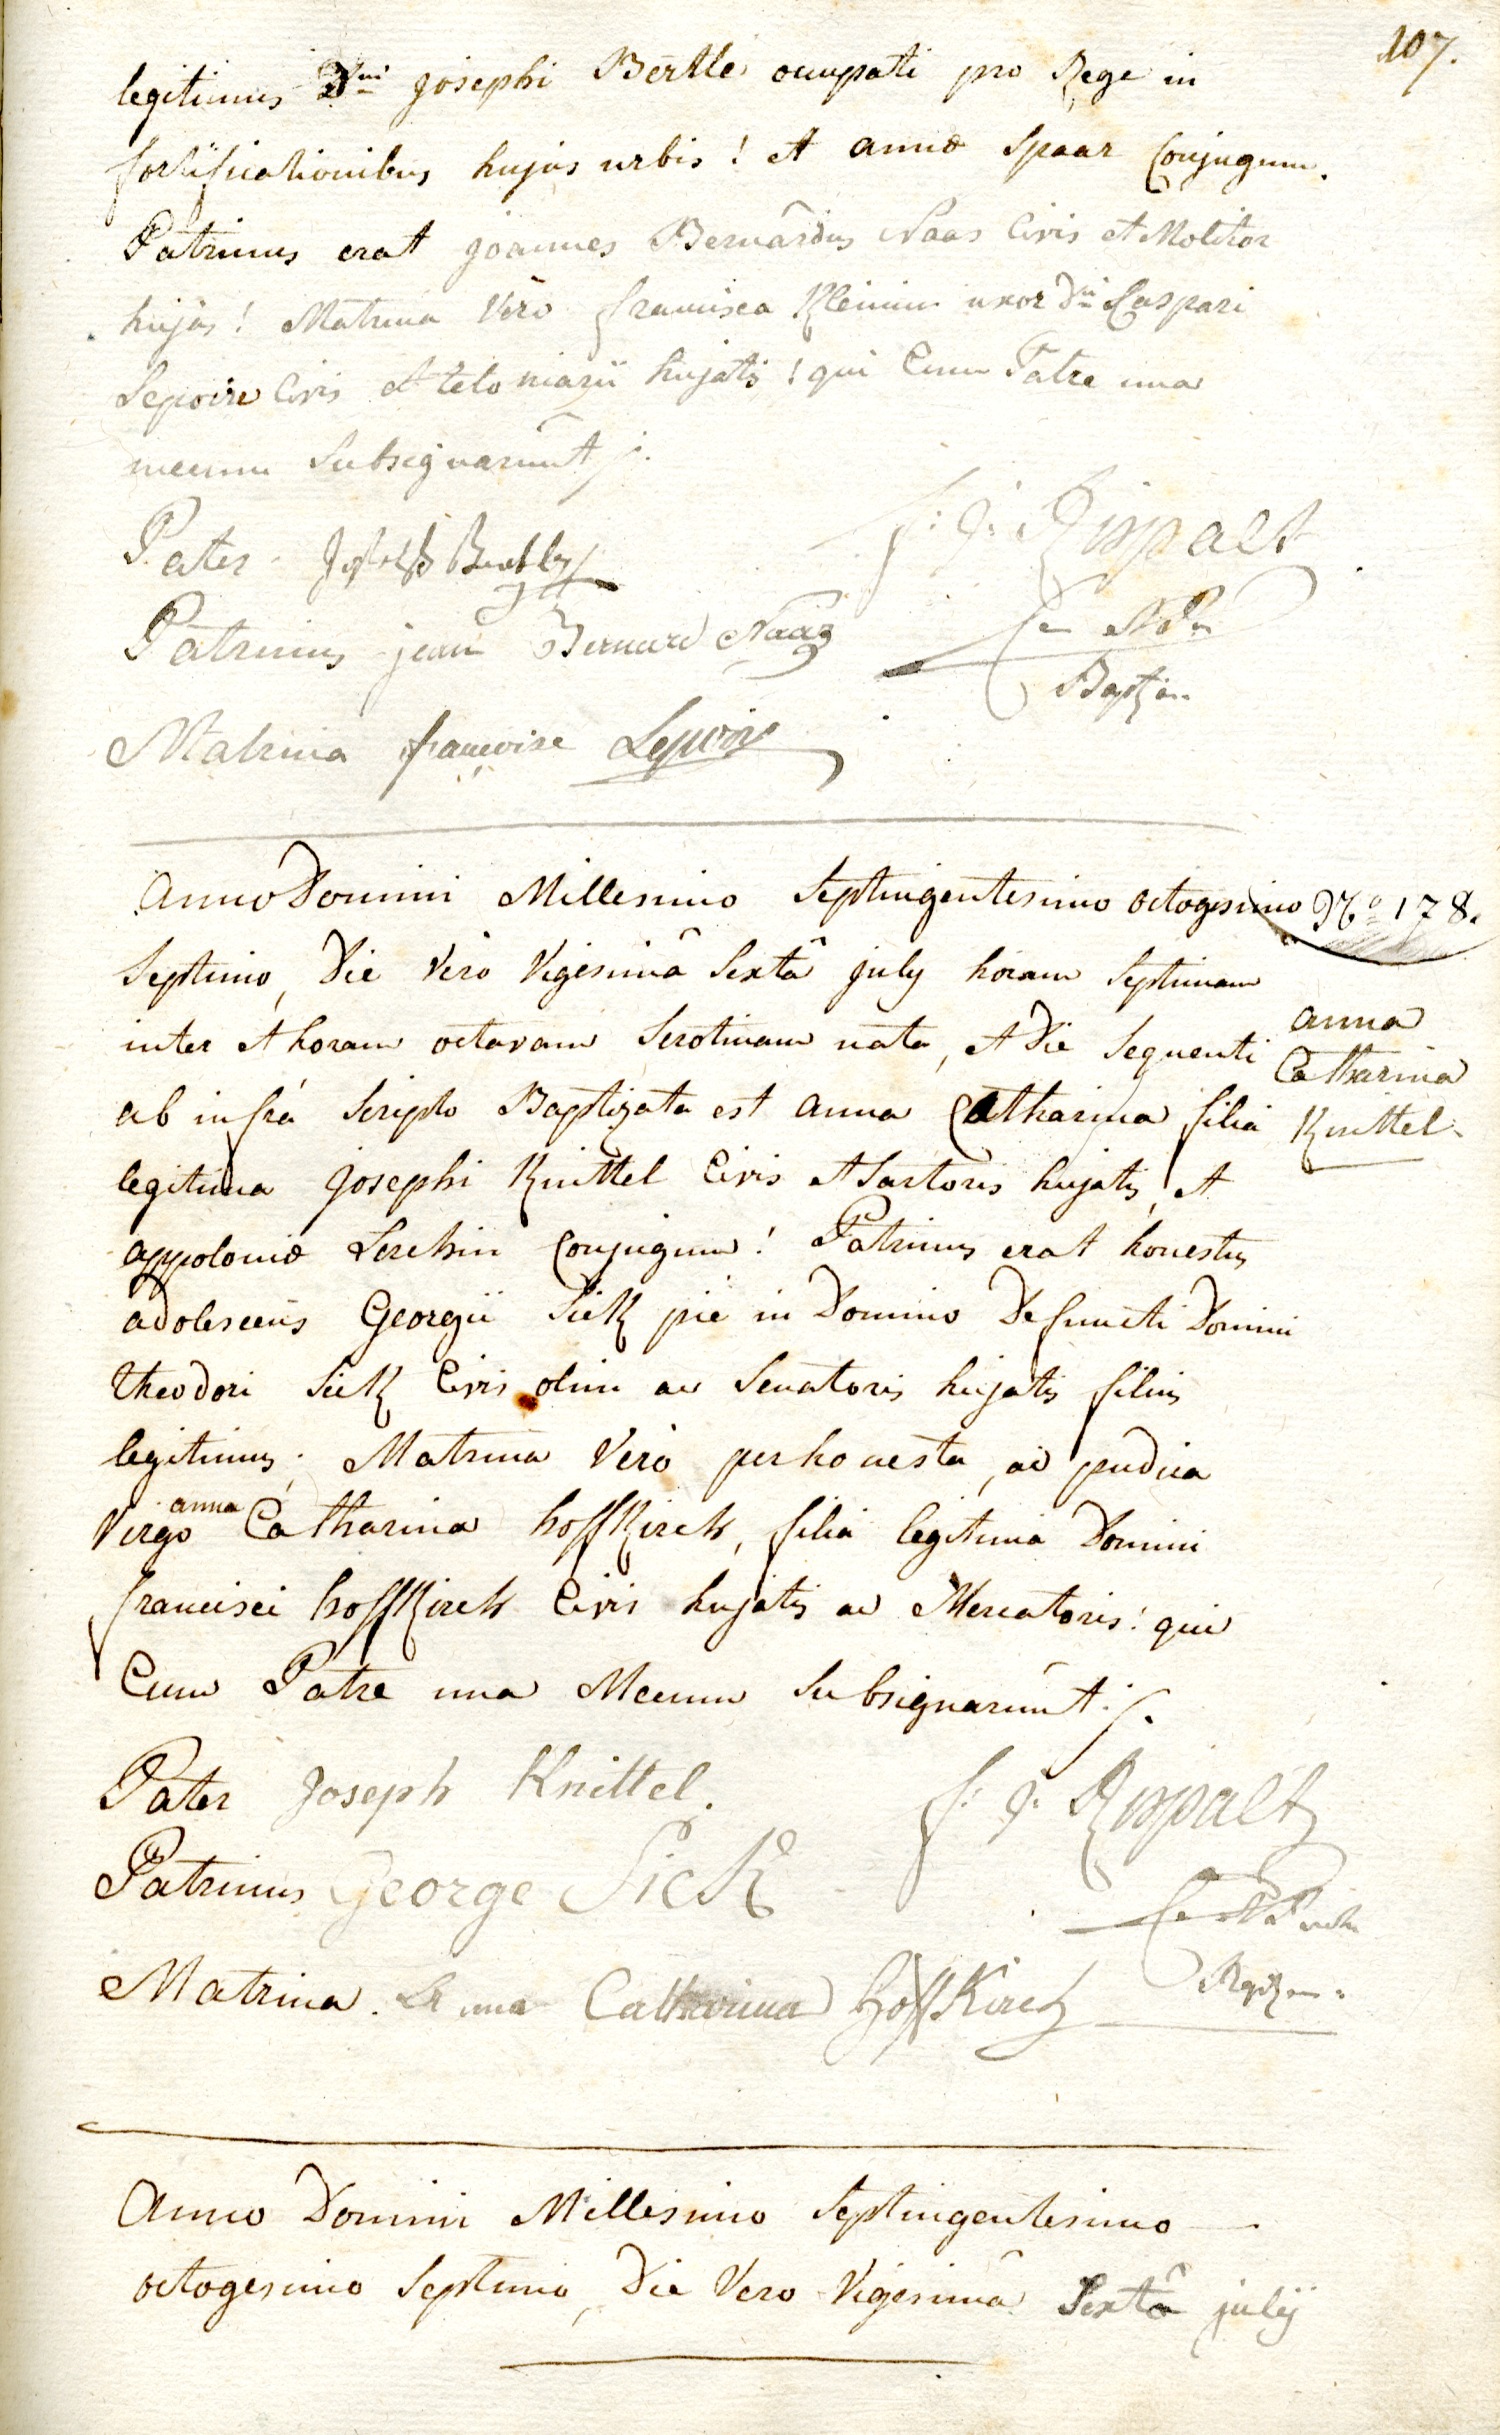 107.
legitimus Dni josephi Bertle ocupati pro Rege in
fortificationibus hujus urbis! et annæ Spaar Conjugum.
Patrinus erat joannes Bernardus Naas Civis et Molitor
hujas! Matrina Vero francisca Kleinin uxor Dni Caspari
Lepoire Civis et teloniarii hujatis! qui Cum Patre una
mecum Subsignarunt ./.
Pater joseph
f: j: Rispalt
Patrinus jean Bernard Naas
Matrina francoise Lepoire
Anno Domini Millesimo Septingentesimo octogesimo
No 178.
Septimo, Die Vero Vigesimâ Sextâ july horam Septimam
inter et horam octavam Serotinam nata, et Die Sequenti
anna
Catharina
Knittel
ab infrá Scripto Baptizata est anna Catharina filia
legitima josephi Knittel Civis et Sartoris hujatis, et
appoloniæ Lerchin Conjugum! Patrinus erat honestus
adolescens Georgii Sick pie in Domino Defuncti Domini
theodori Sick Civis olim ac Senatoris hujatis filius
legitimus; Matrina Vero perhonesta, ac pudica
Virgo anna Catharina hoffkirch, filia legitima Domini
francisci hoffkirch Civis hujatis ac Mercatoris! qui
Cum Patre una Mecum Subsignarunt ./.
Pater Joseph Knittel.
f: j: Rispalt
Patrinus George Sick
Matrina. Anna Catharina Hoffkirch
Anno Domini Millesimo Septingentesimo
octogesimo Septimo, Die Vero Vigesimâ Sextâ julij